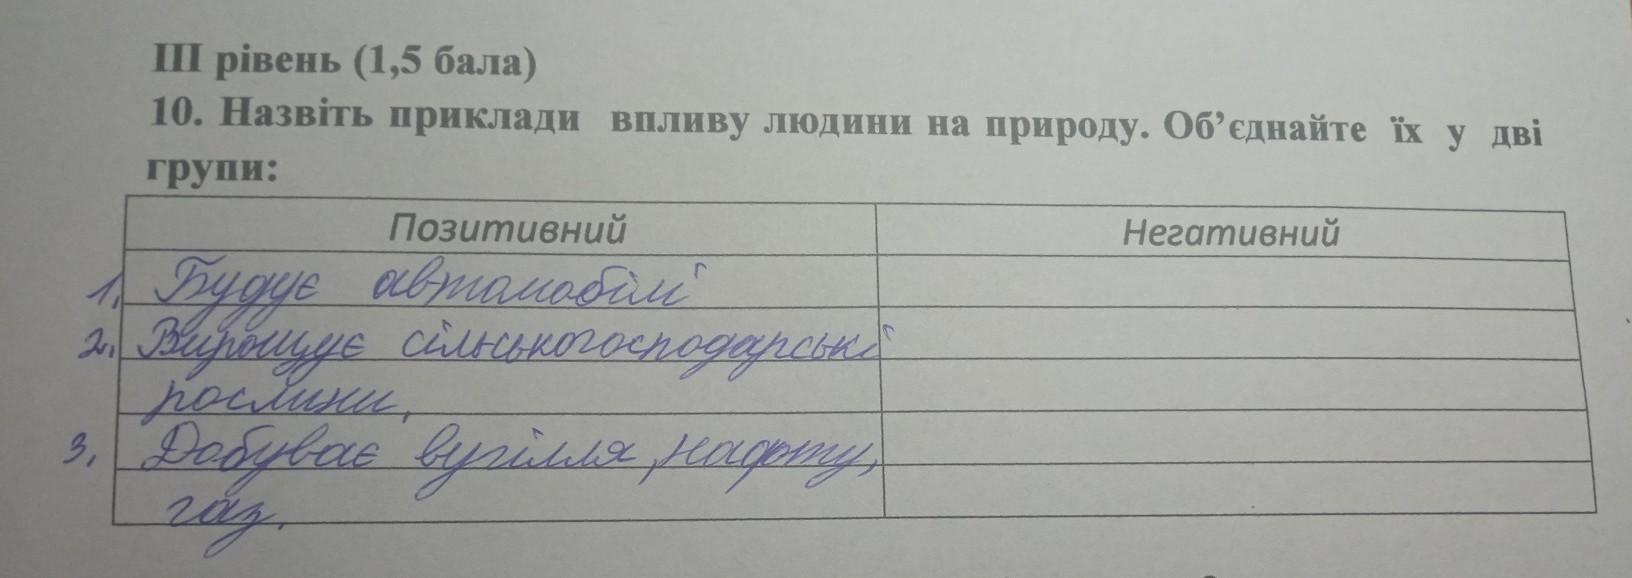 III рівень (1,5 бала)
10. Назвіть приклади впливу людини на природу. Об’єднайте їх у дві
групи:
Позитивний Негативний
1. Будує автомобілі
2. Вирощує сільськогосподарські
рослини,
3. Добуває вугілля, нафту,
газ.